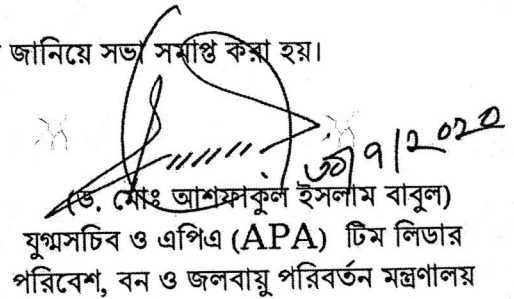 জানিয়ে সভা সমাপ্ত করা হয়।
৩০/৭/২০২০
(ড. মোঃ আশফাকুল ইসলাম বাবুল)
যুগ্মসচিব ও এপিএ (APA) টিম লিডার
পরিবেশ, বন ও জলবায়ু পরিবর্তন মন্ত্রণালয়